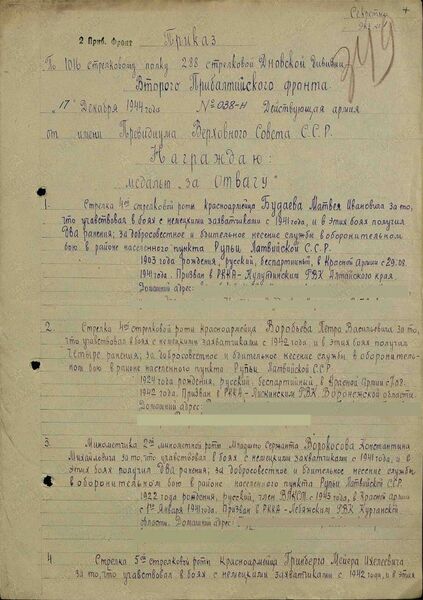 Секретно
2 Приб. Фронт Приказ
По 1016 стрелковому полку 288 стрелковой Дновской Дивизии
Второго Прибалтийского фронта
"17" Декабря 1944 года № 038-н Действующая армия
от имени Президиума Верховного Совета С.С.Р.
Награждаю:
медалью „за Отвагу"
1. Стрелка 4ой стрелковой роты красноармейца Будаева Матвея Ивановича за то,
что участвовал в боях с немецкими захватчиками с 1941 года, и в этих боях получил
два ранения; за добросовестное и бдительное несение службы в оборонительном
бою в районе населенного пункта Рупьи Латвийской С.С.Р.
1903 года рождения, русский, беспартийный, в Красной Армии с 29.08.
1941 года. Призван в РККА - Кулундинским РВК Алтайского края.
Домашний адрес:
2. Стрелка 4ой стрелковой роты Красноармейца Воробьева Петра Васильевича за то,
что участвовал в боях с немецкими захватчиками с 1942 года, и в этих боях получил
четыре ранения; за добросовестное и бдительное несение службы в оборонитель-
ном бою в районе населенного пункта Рупьи Латвийской ССР.
1924 года рождения, русский, беспартийный, в Красной Армии с
1942 года. Призван в РККА - Лискинским РВК Воронежской области.
Домашний адрес:
3. Минометчика 2ой минометной роты Младшего Сержанта Ворокосова Константина
Михайловича за то, что участвовал в боях с немецкими захватчиками с 1941 года, и в
этих боях получил два ранения; за добросовестное и бдительное несение службы
в оборонительном бою в районе населенного пункта Рупьи Латвийской ССР.
1922 года рождения, русский, член ВЛКСМ с 1943 года, в Красной Армии
с 1го Января 1941 года. Призван в РККА - Лебяжским РВК Курганской
области. Домашний адрес:
4. Стрелка 5ой стрелковой роты Красноармейца Гринберга Мейера Ихелевича
за то, что участвовал в боях с немецкими захватчиками с 1942 года, и в этих